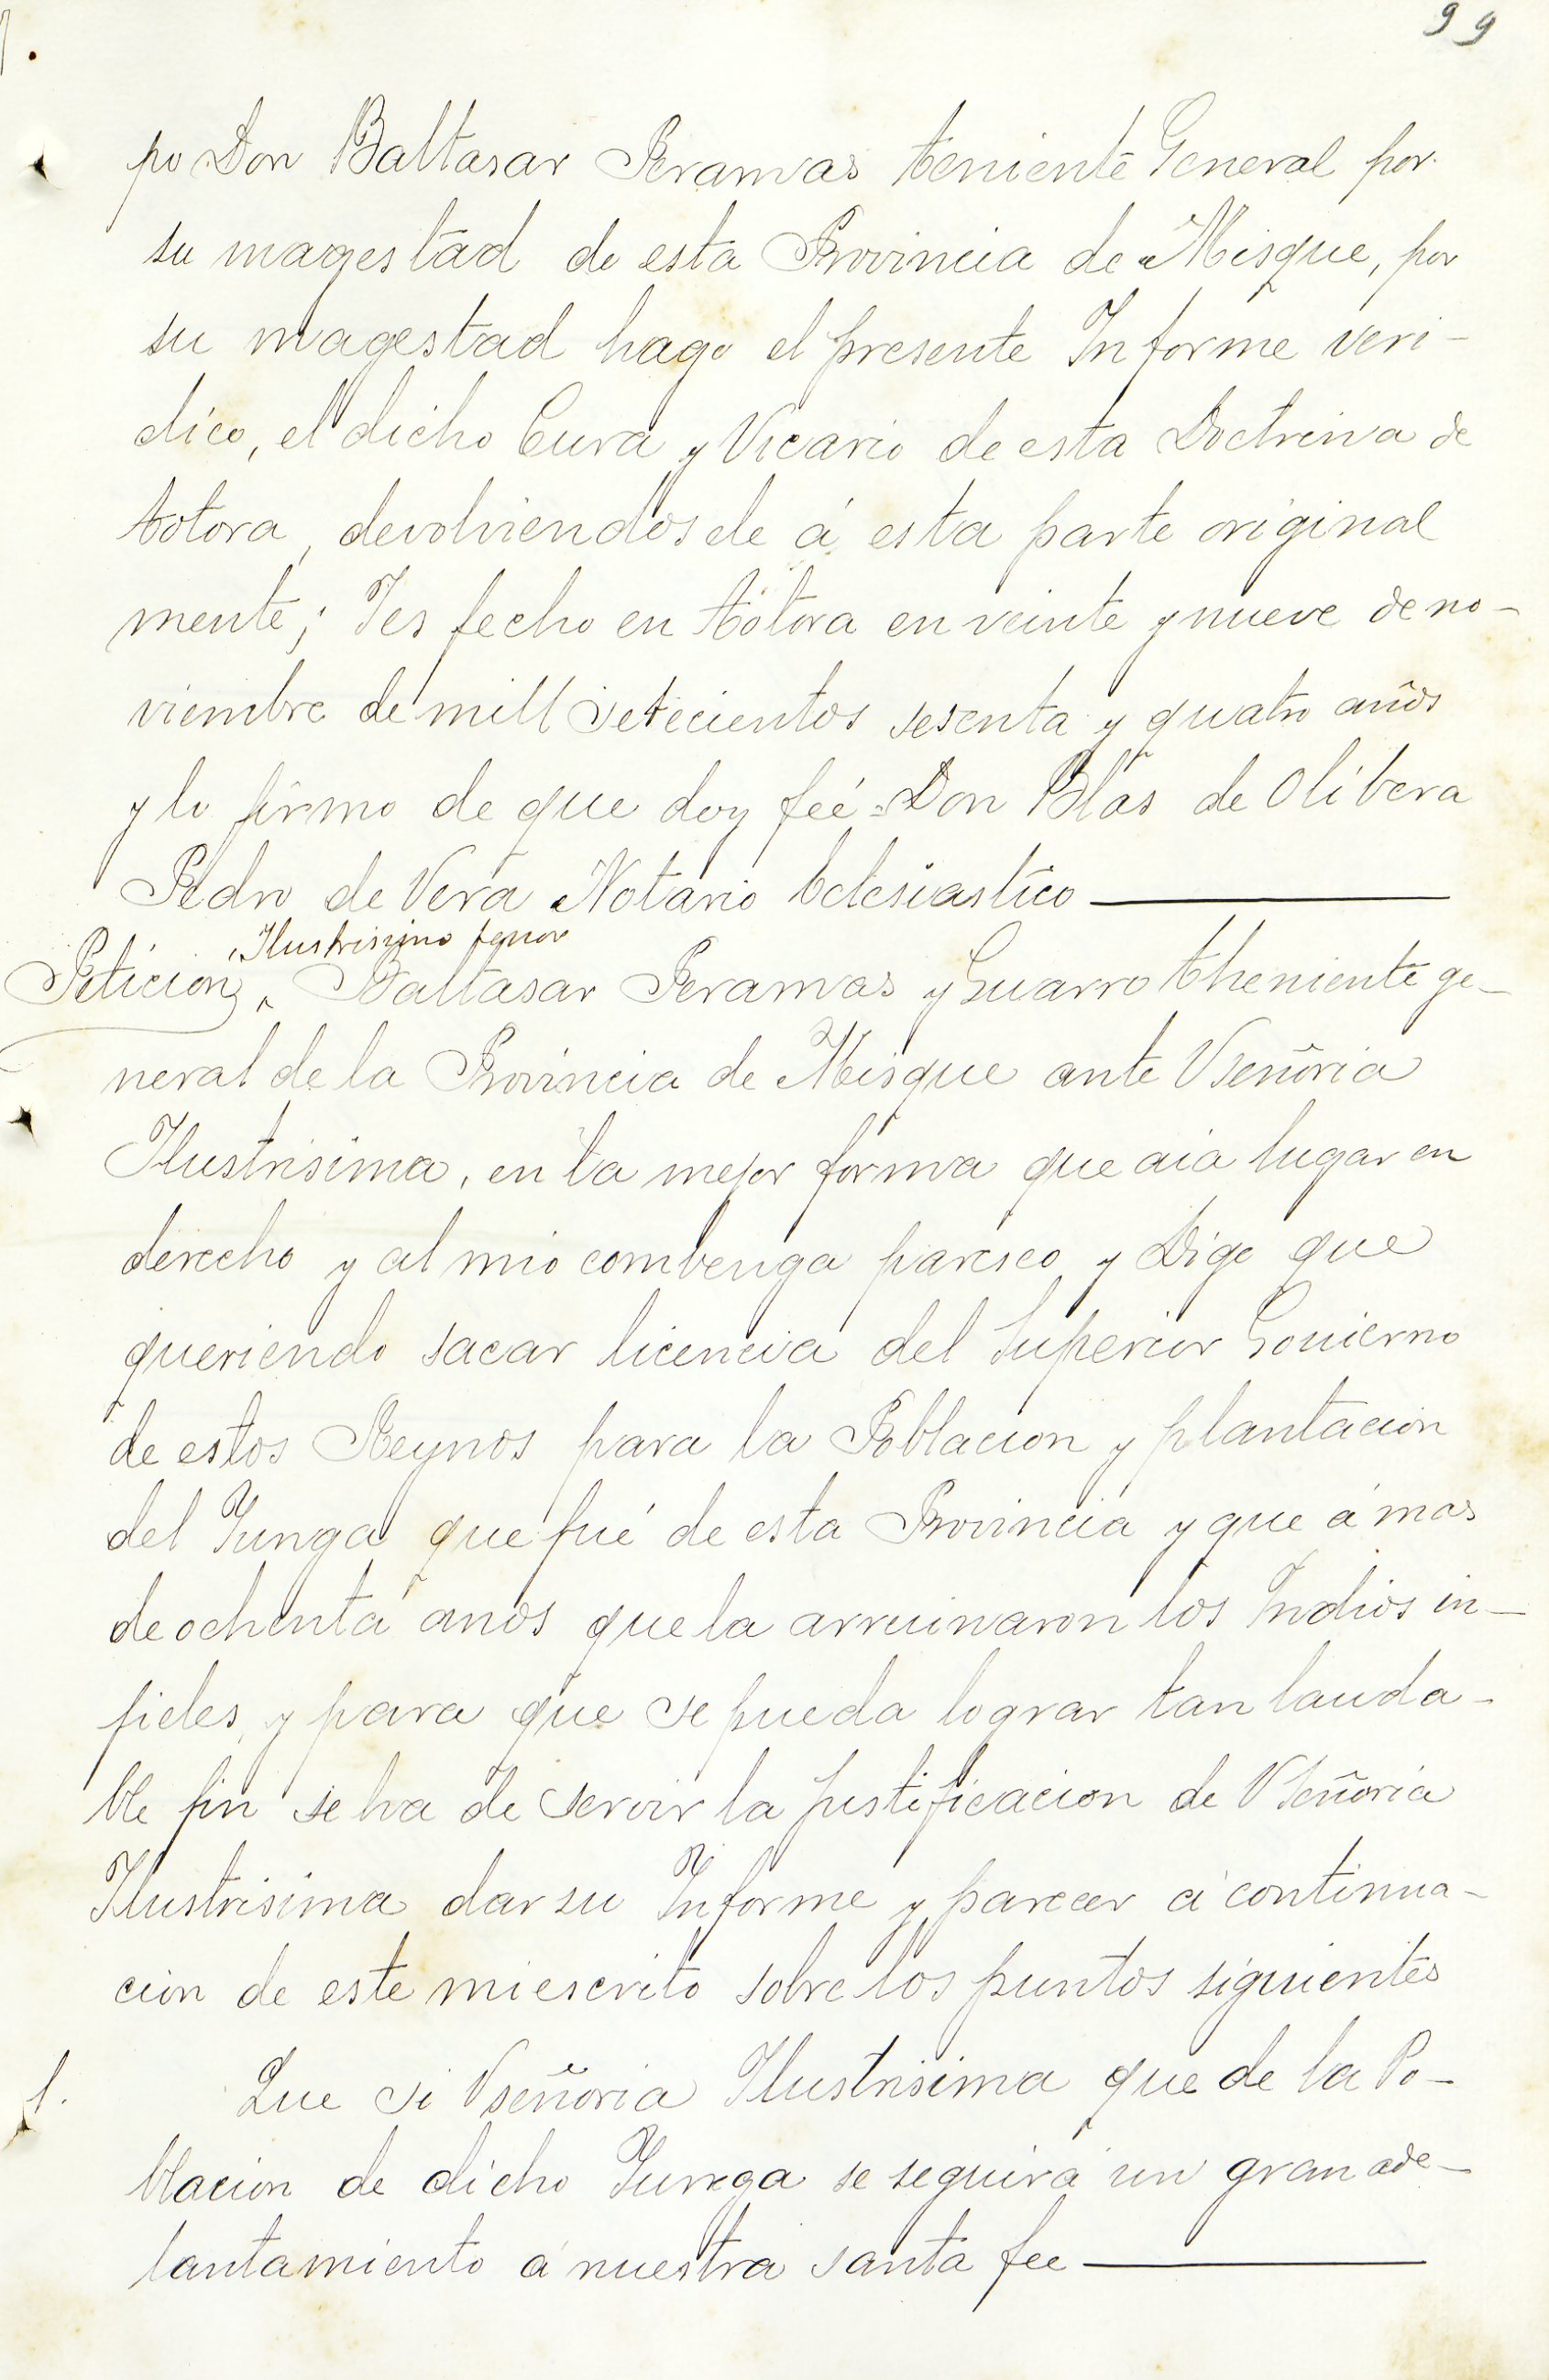 99
po Don Baltasar Peramas teniente General por
su magestad de esta Provincia de Misque, por
su magestad hago el presente Informe veri-
dico, el dicho Cura y Vicario de esta Doctrina de
totora, devolviendosele á esta parte original
mente; Ies fecho en totora en veinte y nueve de no-
viembre de mill setecientos sesenta y quatro años
y lo firmo de que doy feé = Don Blas de Olibera
Pedro de Vera Notario Eclesiastico
Ilustrisimo señor
Peticion, Baltasar Peramas y Guarro theniente ge-
neral de la Provincia de Misque ante Vseñoria
Ilustrisima, en la mejor forma que aia lugar en
derecho y al mio combenga paresco y Digo que
queriendo sacar licencia del Superior Gouierno
de estos Reynos para la Poblacion y plantacion
del Yunga que fué de esta Provincia y que á mas
de ochenta anos que la arruinaron los Indios in-
fieles, y para que se pueda lograr tan lauda-
ble fin se ha de servir la justificacion de VSeñoria
Ilustrisima dar su Informe y parecer á continua-
cion de este mi escrito sobre los puntos siguientes
1. Que si Vseñoria Ilustrisima que de la Po-
blacion de dicho Yunga se seguirá un gran ade-
lantamiento á nuestra santa fee